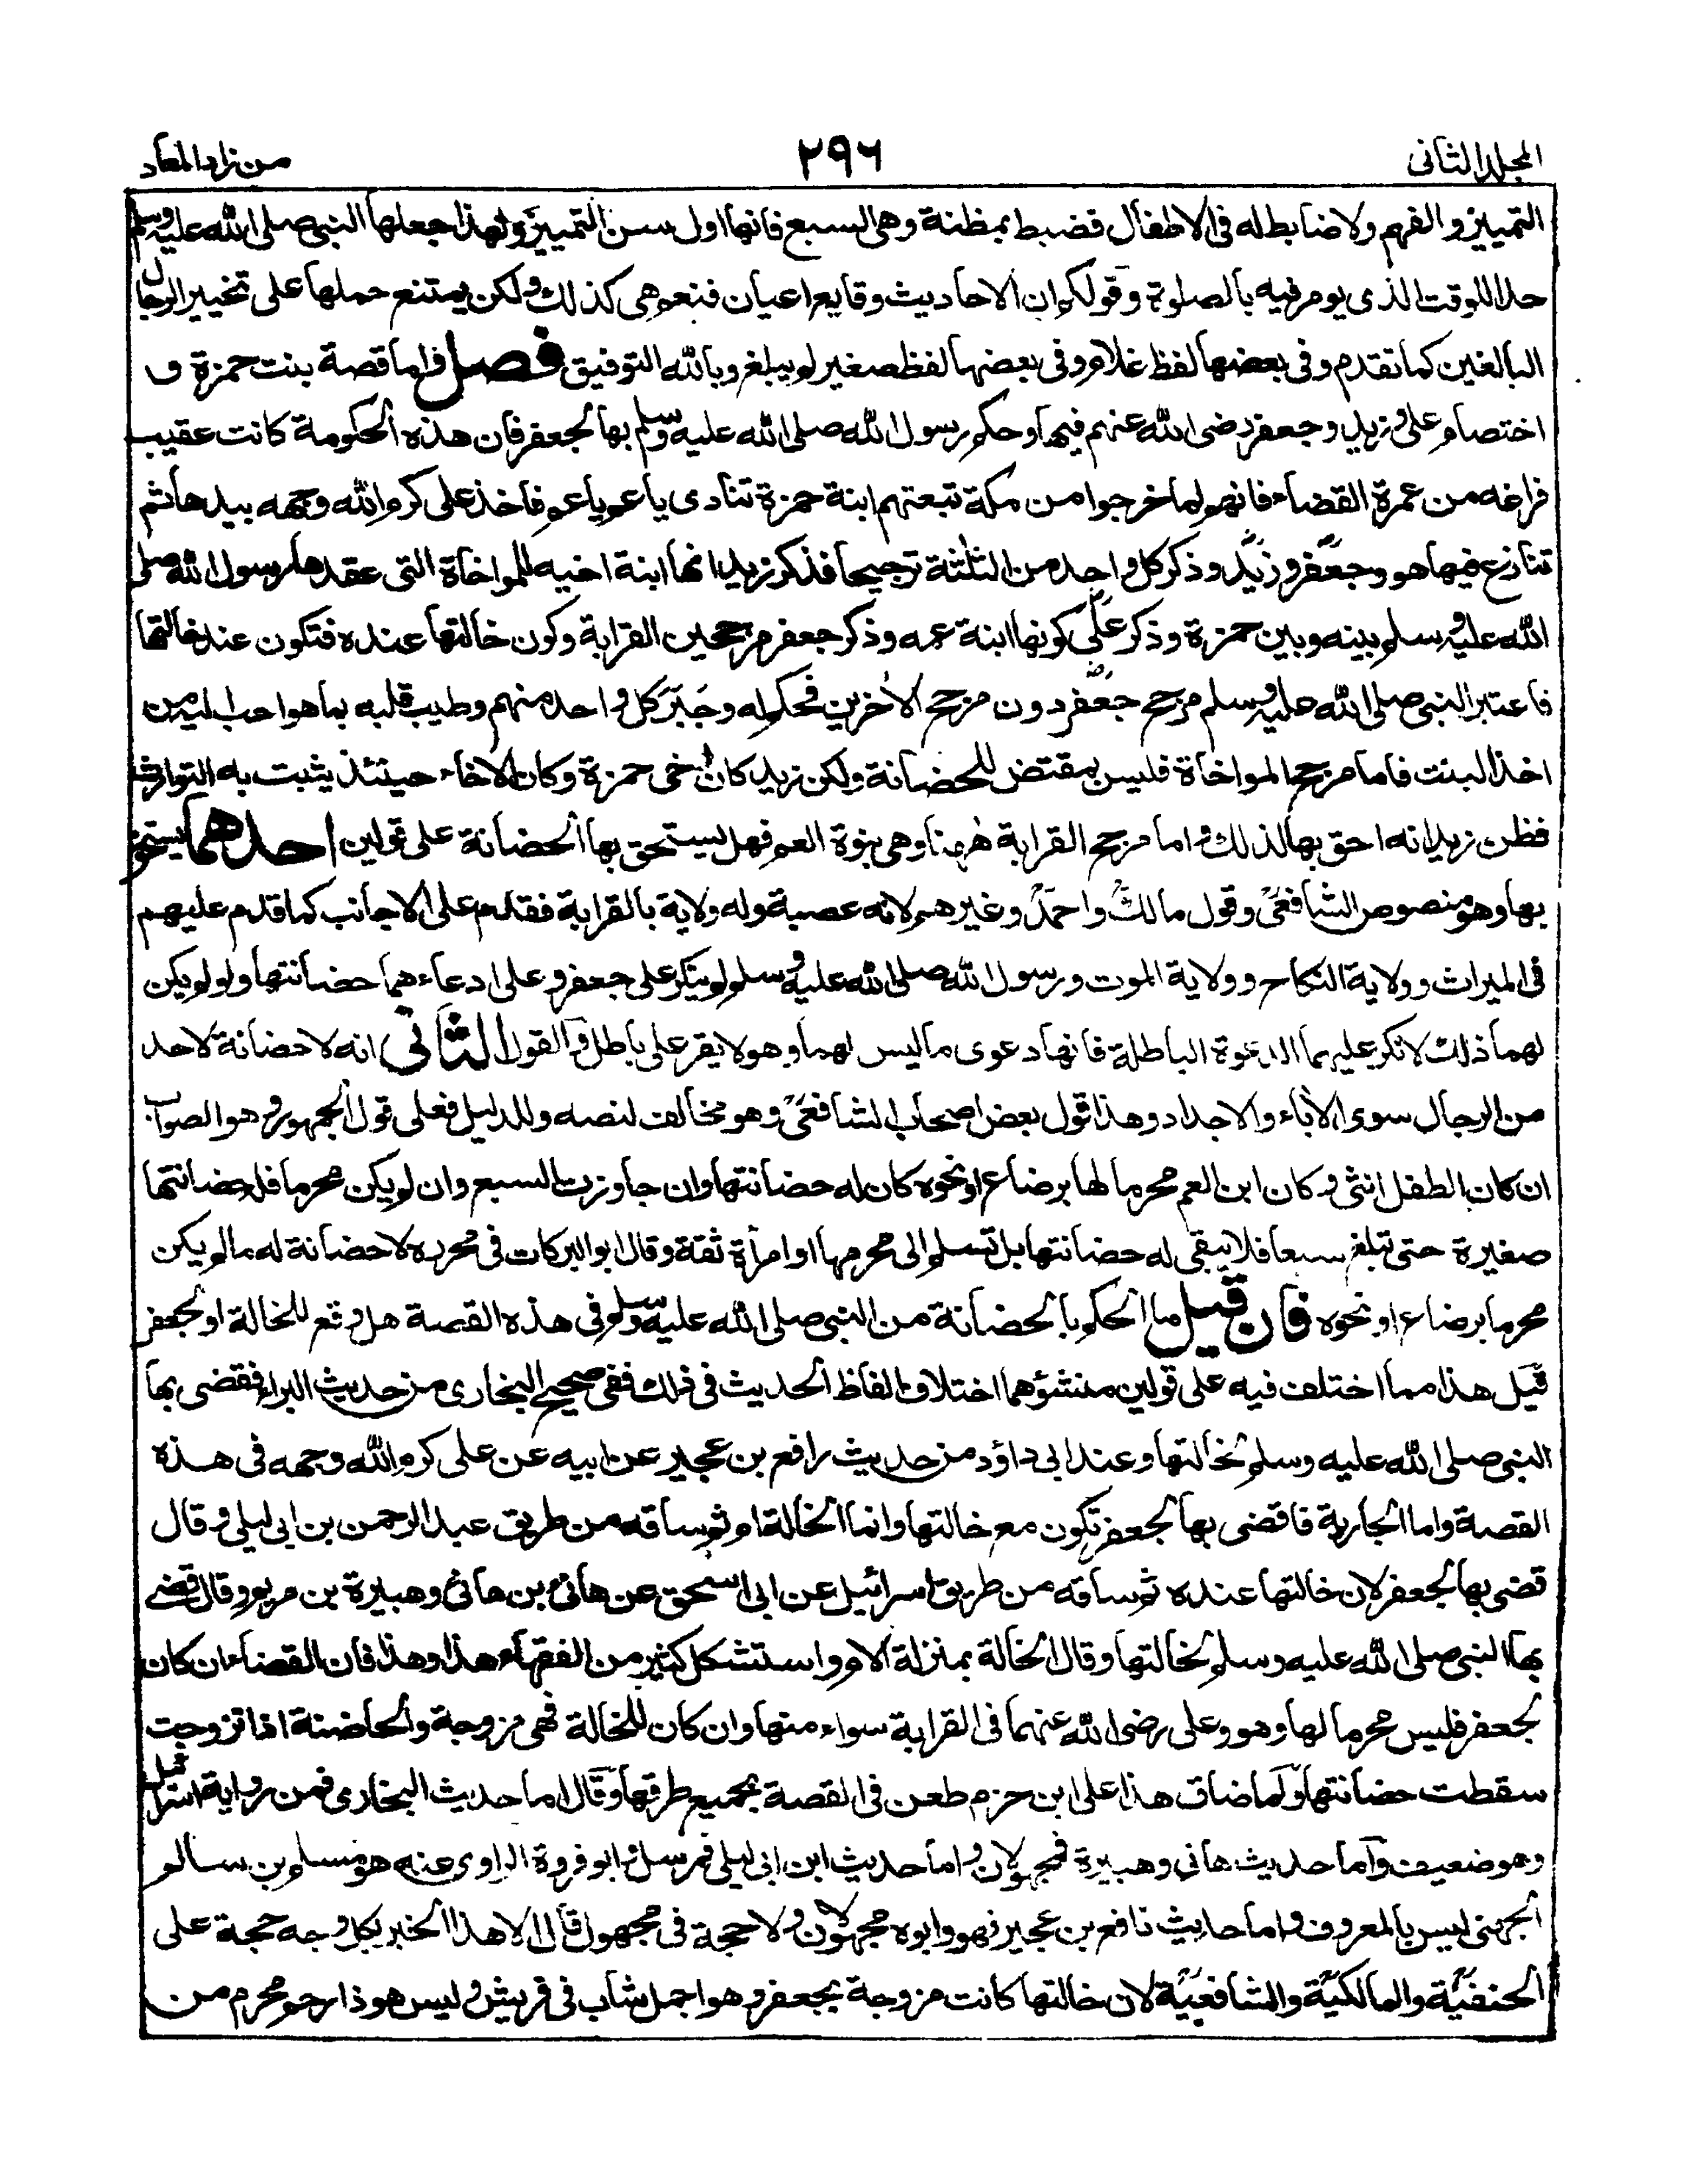 المجلد الثانى
٢٩٦
من زاد المعاد
التمييز والفهم ولا ضابط له فى الاطفال فضبط بمظنة وهى السبع فانها اول سن التمييز ولهذا جعلها النبى صلى الله عليه وسلم
حدا للوقت الذى يومر فيه بالصلوة وقولكم ان الاحاديث وقايع اعيان فنعم هى كذلك ولكن يمتنع حملها على تخيير الرجال
البالغين كما تقدم وفى بعضها لفظ غلام وفى بعضها لفظ صغير لم يبلغ وبالله التوفيق فصل واما قصة بنت حمزة و
اختصام على وزيد وجعفر رضى الله عنهم فيها وحكم رسول الله صلى الله عليه وسلم بها لجعفر فان هذه الحكومة كانت عقيب
فراغه من عمرة القضاء فانهم لما خرجوا من مكة تبعتهم ابنة حمزة تنادى يا عم يا عم فاخذ على كرم الله وجهه بيدها ثم
تنازع فيها هو وجعفر وزيد وذكر كل واحد من الثلثة ترجيحا فذكر زيد انها ابنة اخيه للمواخاة التى عقدها رسول الله صلى
الله عليه وسلم بينه وبين حمزة وذكر على كونها ابنة عمه وذكر جعفر مرجحين القرابة وكون خالتها عنده فتكون عند خالتها
فاعتبر النبى صلى الله عليه وسلم مرجح جعفر دون مرجح الاخرين فحكم له وجَبَّرَ كل واحد منهم وطيب قلبه بما هو احب اليه من
اخذ البنت فاما مرجح المواخاة فليس بمقتض للحضانة ولكن زيد كان خى حمزة وكان الاخاء حينئذ يثبت به التوارث
فظن زيد انه احق بها لذلك واما مرجح القرابة ههنا وهى بنوة العم فهل يستحق بها الحضانة على قولين احدهما يستحق
بها وهو منصوص الشافعى وقول مالك واحمد وغيرهم لانه عصبة وله ولاية بالقرابة فقدم على الاجانب كما قدم عليهم
فى الميراث وولاية النكاح وولاية الموت ورسول الله صلى الله عليه وسلم لم ينكر على جعفر وعلى ادعاءهما حضانتها ولو لم يكن
لهما ذلك لانكر عليهما الدعوة الباطلة فانها دعوى ما ليس لهما وهو لا يقر على باطل والقول الثانى انه لا حضانة لاحد
من الرجال سوى الاباء والاجداد وهذا قول بعض اصحاب الشافعى وهو مخالف لنصه وللدليل فعلى قول الجمهور وهو الصواب
ان كان الطفل انثى وكان ابن العم محرما لها برضاع او نحوه كان له حضانتها وان جاوزت السبع وان لم يكن محرما فله حضانتها
صغيرة حتى تبلغ سبعا فلا يبقى له حضانتها بل تسلم الى محرمها او امرأة ثقة وقال ابو البركات فى محرره لا حضانة له مالم يكن
محرما برضاع او نحوه فان قيل ما الحكم بالحضانة من النبى صلى الله عليه وسلم فى هذه القصة هل وقع للخالة او لجعفر
قيل هذا مما اختلف فيه على قولين منشؤهما اختلاف الفاظ الحديث فى ذلك ففى صحيح البخارى من حديث البراء فقضى بها
النبى صلى الله عليه وسلم لخالتها وعند ابى داؤد من حديث رافع بن عجير عن ابيه عن على كرم الله وجهه فى هذه
القصة واما الجارية فاقضى بها لجعفر تكون مع خالتها وانما الخالة ام ثم ساقه من طريق عبد الرحمن بن ابى ليلى وقال
قضى بها لجعفر لان خالتها عنده ثم ساقه من طريق اسرائيل عن ابى اسحق عن هانئ بن هانئ وهبيرة بن مريم وقال قضى
بها النبى صلى الله عليه وسلم لخالتها وقال الخالة بمنزلة الام واستشكل كثير من الفقهاء هذا وهذا فان القضاء ان كان
لجعفر فليس محرما لها وهو وعلى رضى الله عنهما فى القرابة سواء منها وان كان للخالة فهى مزوجة والحاضنة اذا تزوجت
سقطت حضانتها ولما ضاق هذا على ابن حزم طعن فى القصة بجميع طرقها وقال اما حديث البخارى فمن رواية اسرائيل
وهو ضعيف واما حديث هانى وهبيرة فمجهولان واما حديث ابن ابى ليلى فمرسل وابو فروة الراوى عنه هو مسلم بن سالم
الجهنى ليس بالمعروف واما حديث نافع بن عجير فهو وابوه مجهولان ولا حجة فى مجهول قال الا هذا الخبر بكل وجه حجة على
الحنفية والمالكية والشافعية لان خالتها كانت مزوجة بجعفر وهو اجمل شاب فى قريش وليس هو ذا رحم محرم من